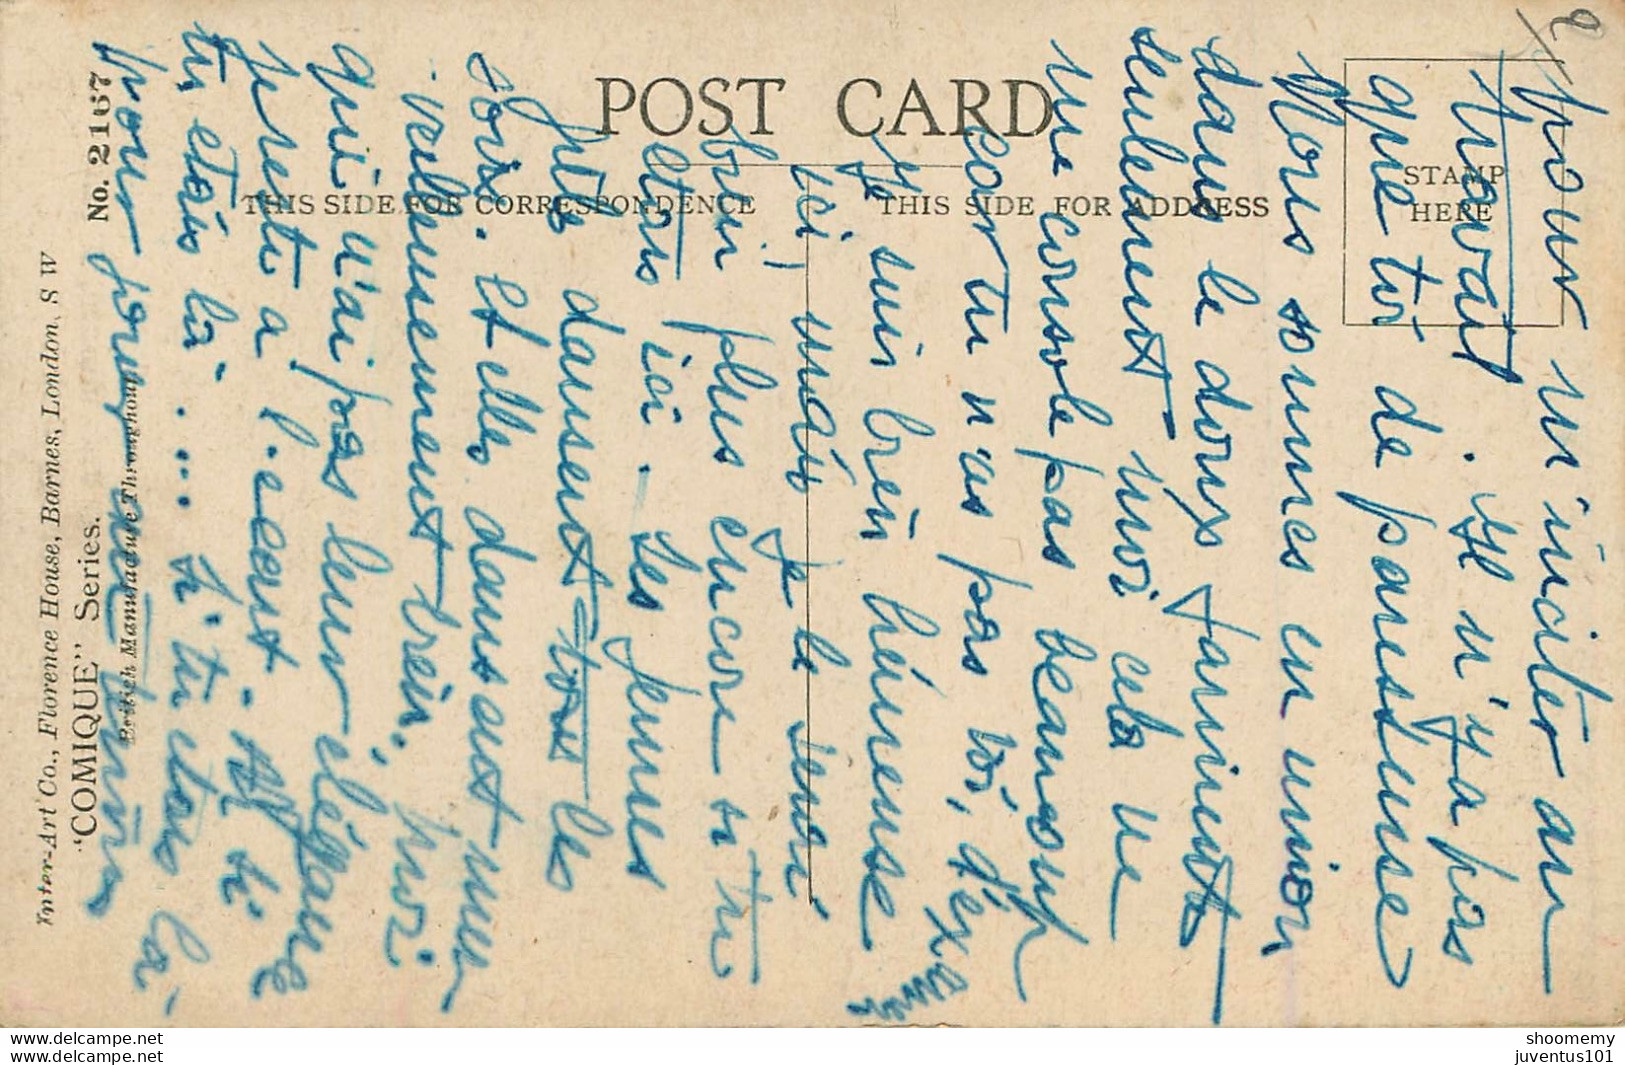 2
pour m'inciter au
travail. Il n'y a pas
que toi de paresseuse
Nous sommes en union
dans le doux farniente
seulement moi cela ne
me console pas beaucoup
car tu n'as pas toi, d'exa
Je suis bien heureuse
ici, mais je le serai
bien plus encore si tu
étais ici. Les jeunes
filles dansent tous les
soirs. Et elles dansent mer
veilleusement bien. Moi
qui n'ai pas leur élégance
je reste à l'écart. Ah si
tu étais là .... si tu étais là
pour
POST CARD
THIS SIDE FOR CORRESPONDENCE
THIS SIDE FOR ADDRESS
STAMP
HERE
No. 2167
British Manufacture Throughout
"COMIQUE" Series.
Inter-Art Co., Florence House, Barnes, London, S W
shoomemy
juventus101
shoomemy
juventus101